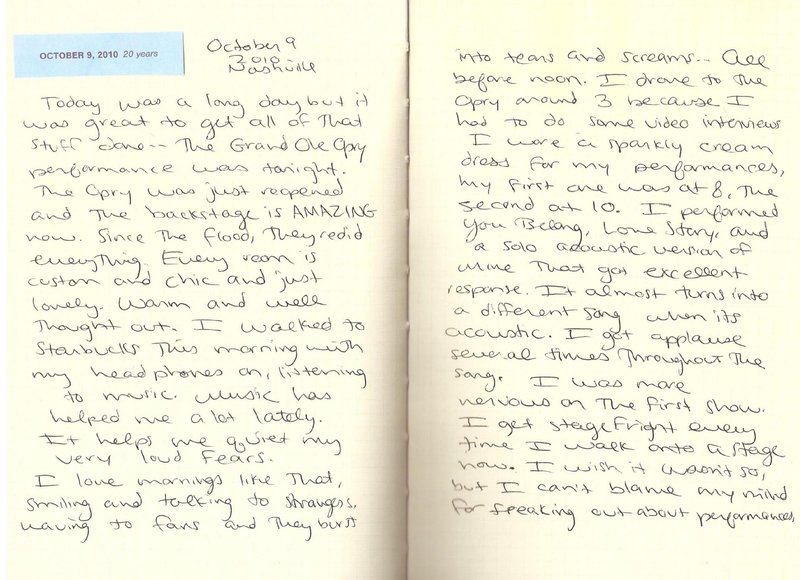 OCTOBER 9, 2010 20 years
October 9
2010
Nashville
Today was a long day but it
was great to get all of that
stuff done -- The Grand Ole Opry
performance was tonight.
The Opry was just reopened
and the backstage is AMAZING
now. Since the flood, they redid
everything. Every room is
custom and chic and just
lovely. Warm and well
thought out. I walked to
Starbucks this morning with
my headphones on, listening
to music. Music has
helped me a lot lately.
It helps me quiet my
very loud fears.
I love mornings like that,
smiling and talking to strangers,
waving to fans and they burst
into tears and screams... All
before noon. I drove to the
Opry around 3 because I
had to do some video interviews
I wore a sparkly cream
dress for my performances,
my first one was at 8, the
second at 10. I performed
You Belong, Love Story, and
a solo acoustic version of
Mine that got excellent
response. It almost turns into
a different song when its
acoustic. I get applause
several times throughout the
song. I was more
nervous on the first show.
I get stagefright every
time I walk onto a stage
now. I wish it wasn't so,
but I can't blame my mind
for freaking out about performances,